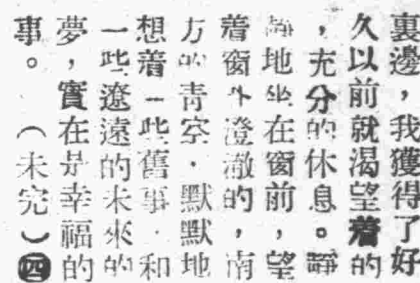 裏邊，我獲得了好
久以前就渴望着的
，充分的休息。靜
靜地坐在窗前，望
着窗外澄澈的，南
方的青空，默默地
想着一些舊事，和
一些遼遠的未來的
夢，實在是幸福的
事。（未完）㊃